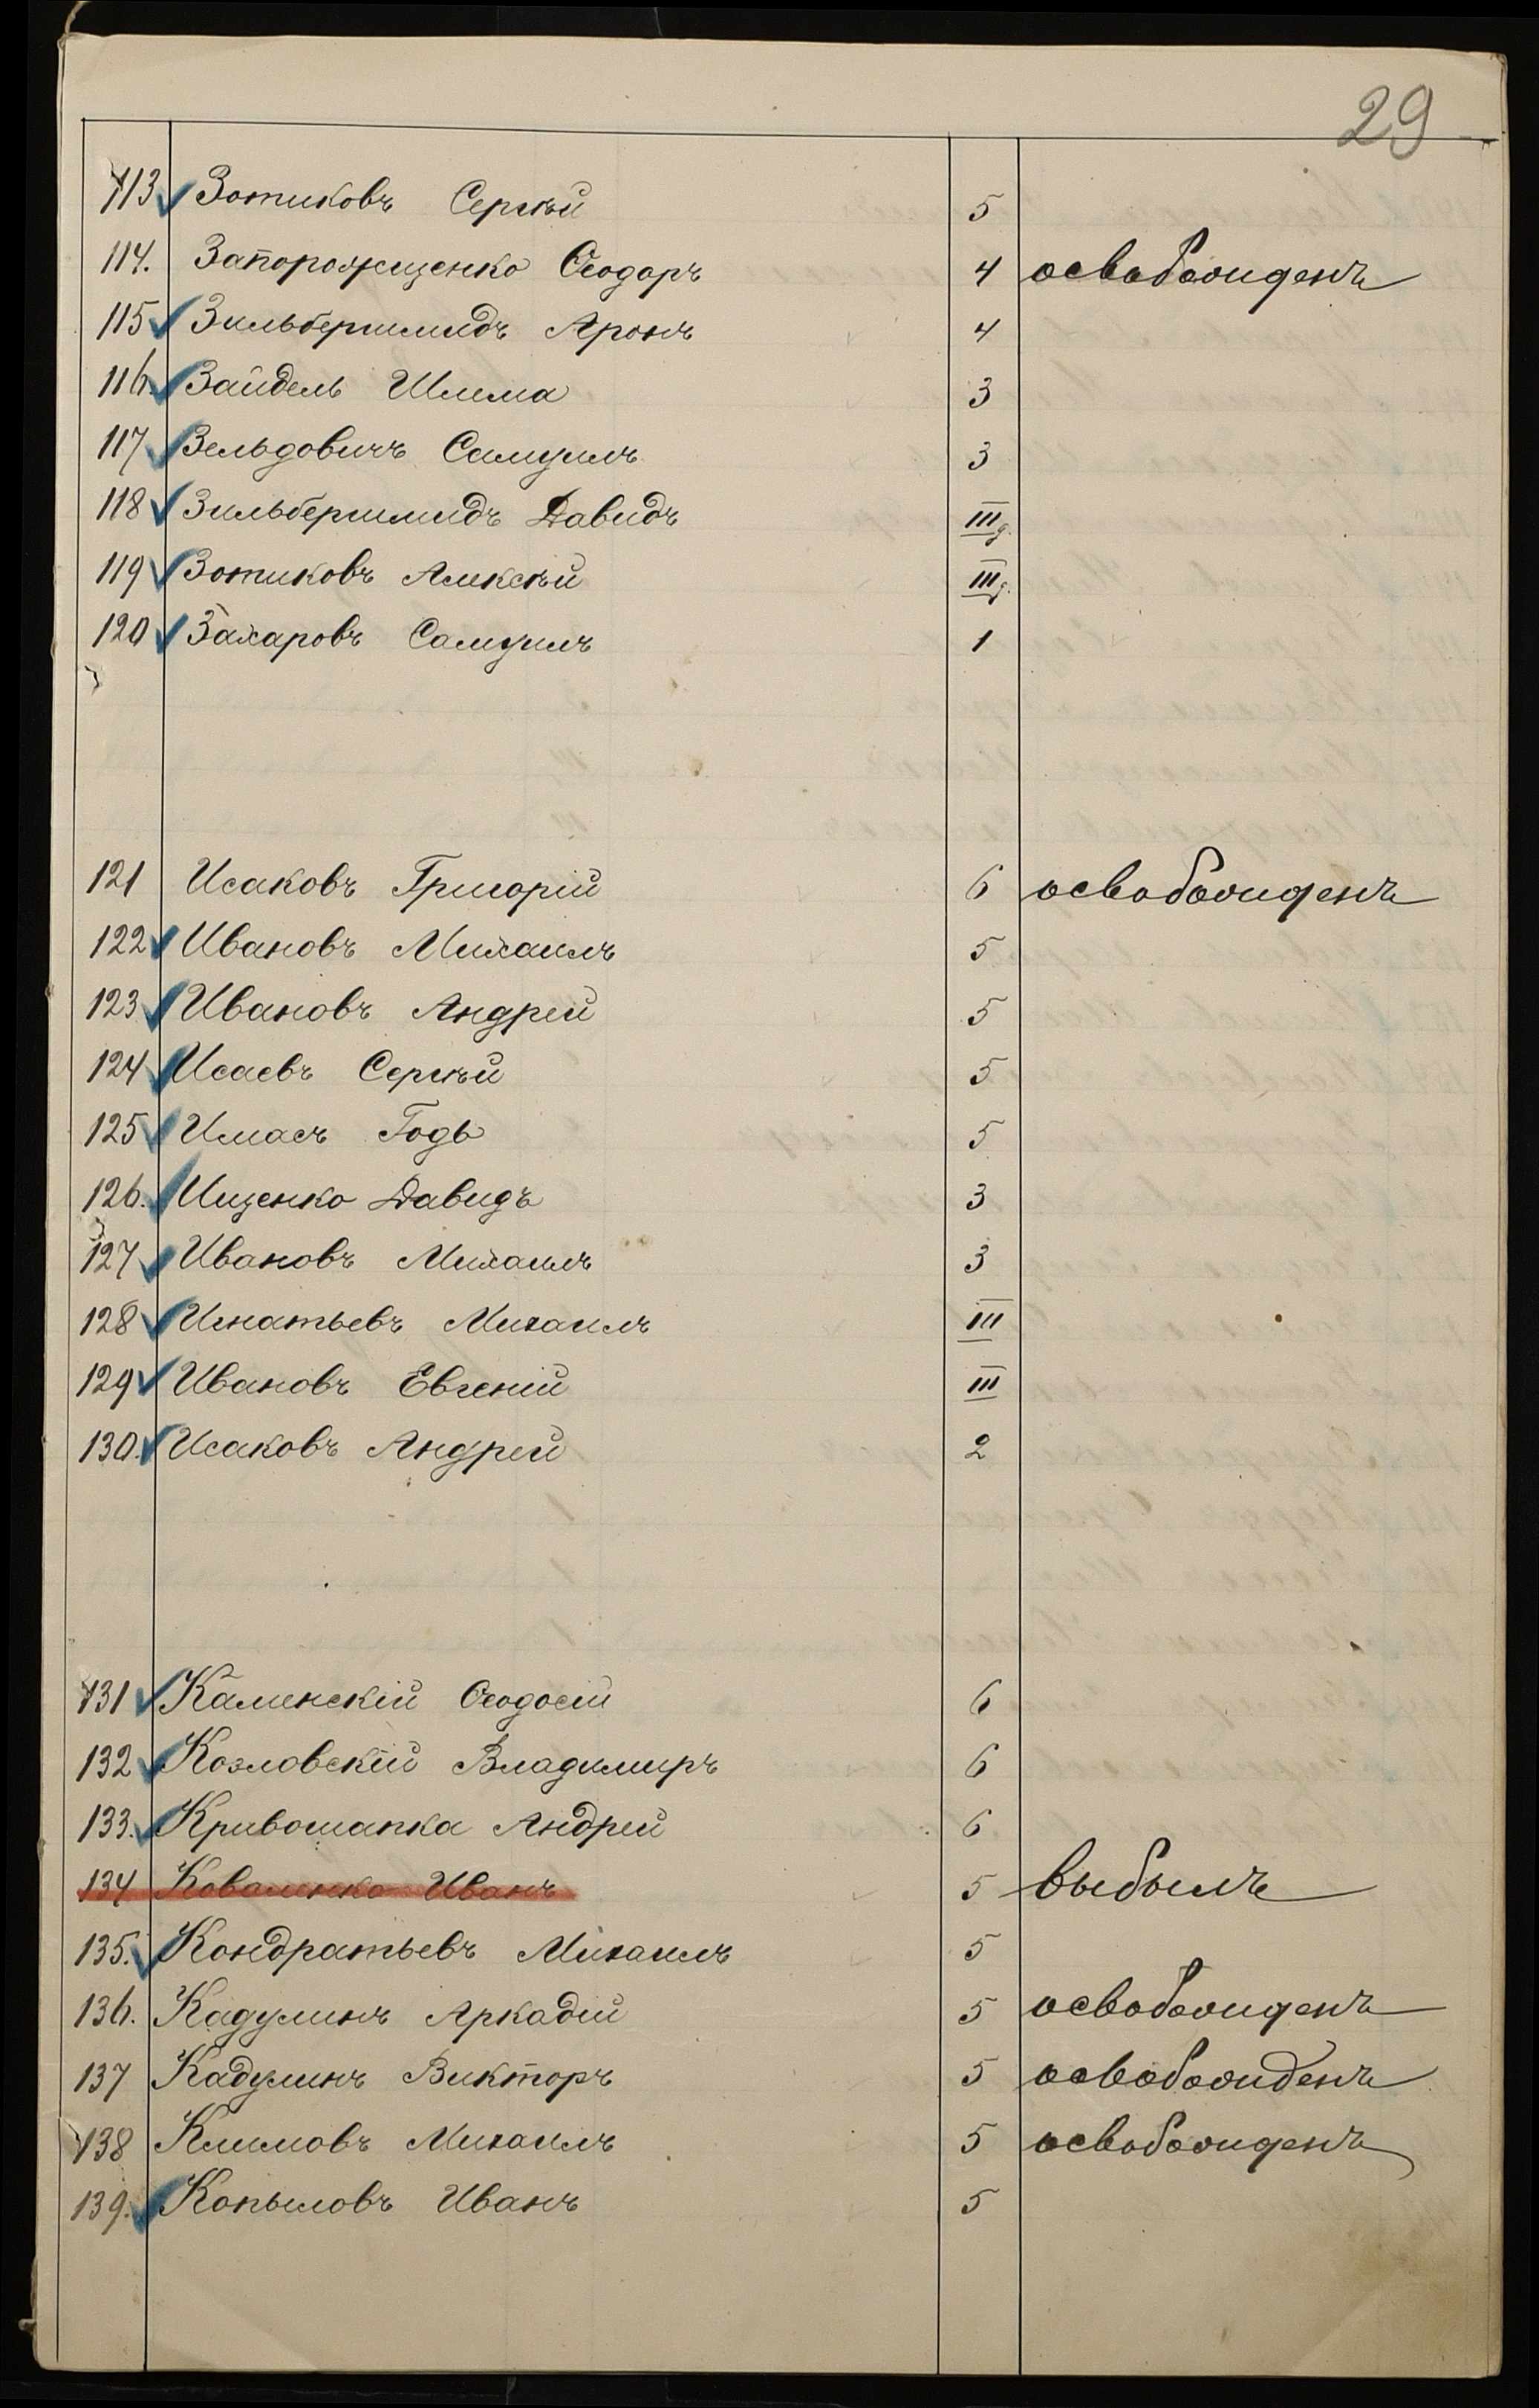 29
113 Зотиковъ Сергѣй 5
114. Запорожценко Ѳеодоръ 4 освобожденъ
115 Зильбершмидъ Аронъ 4
116. Зайдель Шлема 3
117 Зельдовичъ Самуилъ 3
118 Зильбершмидъ Давидъ III д.
119 Зотиковъ Алексѣй III д.
120 Захаровъ Самуилъ 1
121 Исаковъ Григорій 6 освобожденъ
122 Ивановъ Михаилъ 5
123 Ивановъ Андрей 5
124 Исаевъ Сергѣй 5
125 Имасъ Годь 5
126. Ищенко Давидъ 3
127 Ивановъ Михаилъ 3
128 Игнатьевъ Михаилъ III
129 Ивановъ Евгеній III
130. Исаковъ Андрей 2
131 Каменскій Ѳеодосій 6
132 Козловскій Владимиръ 6
133. Кривошапка Андрей 6
134 Коваленко Иванъ 5 выбылъ
135. Кондратьевъ Михаилъ 5
136. Кадулинъ Аркадій 5 освобожденъ
137 Кадулинъ Викторъ 5 освобожденъ
138 Климовъ Михаилъ 5 освобожденъ
139. Копыловъ Иванъ 5